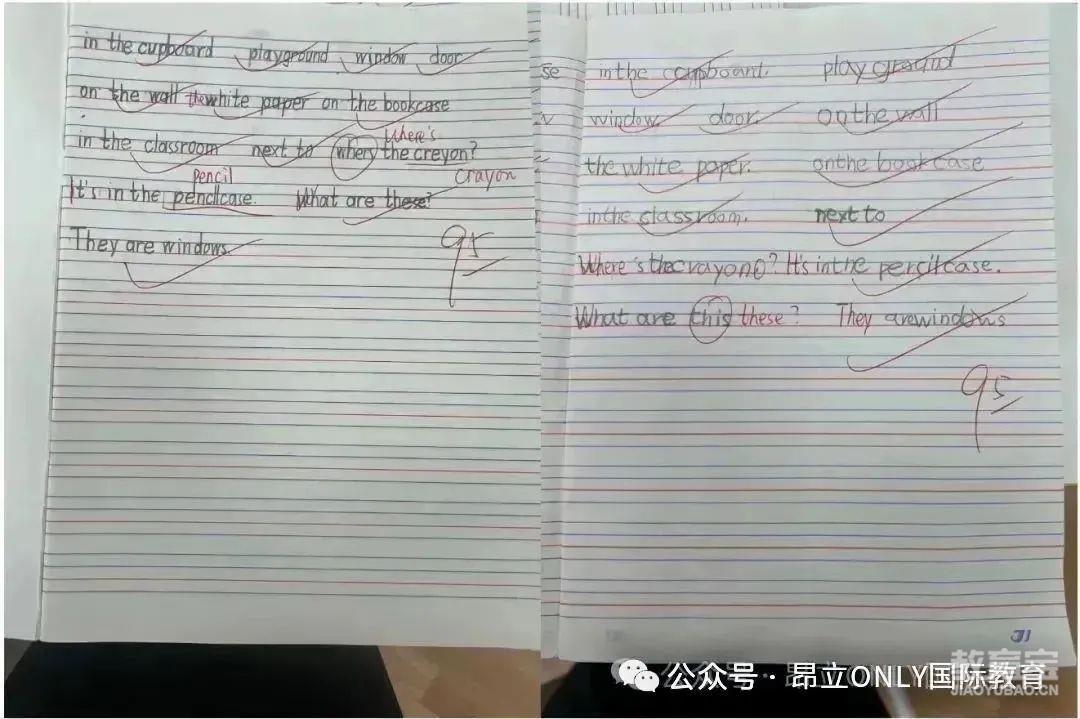 in the cupboard playground window door
on the wall the white paper on the bookcase
Where's
in the classroom next to whery the creyon?
pencil crayon
It's in the penclcase. What are these?
They are windows.
95
se in the cupboard. playground
window. door. on the wall
the white paper. on the bookcase
in the classroom. next to
Where's the crayon? It's in the percilcase.
What are this these? They are windows
95
公众号 · 昂立ONLY国际教育
教育宝
JIAOYUBAO.CN